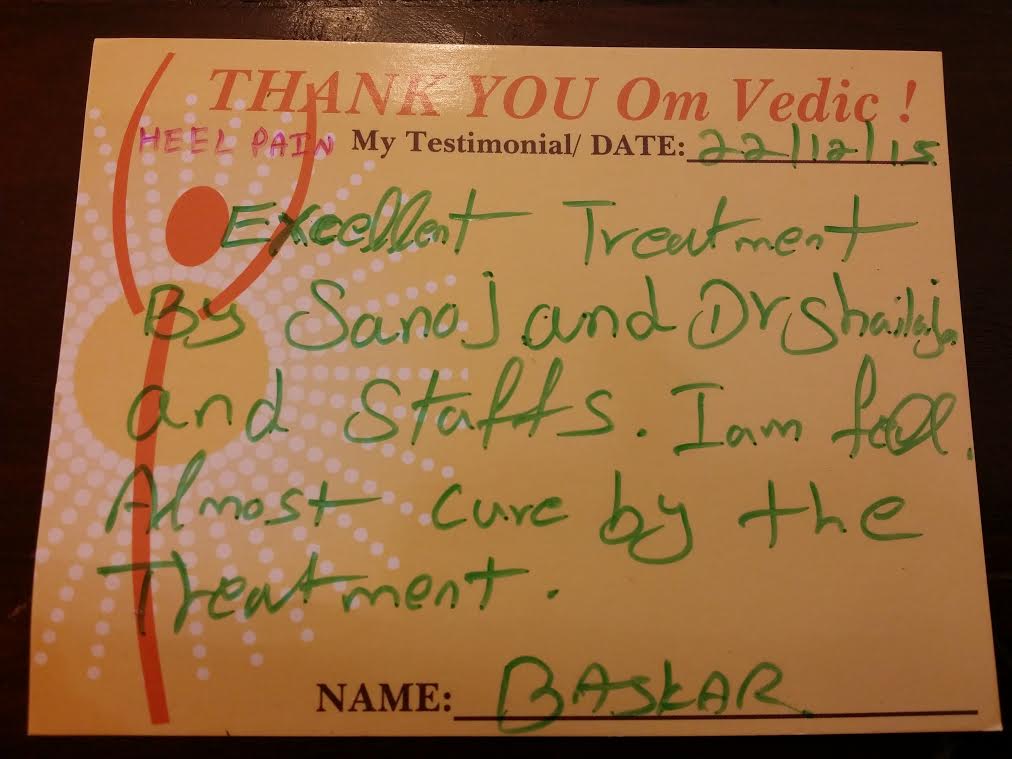 THANK YOU Om Vedic !
HEEL PAIN My Testimonial/ DATE: 22/12/15
Excellent Treatment
By Sanoj and Dr Shailaja
and Staffs. I am feel.
Almost cure by the
Treatment.
NAME: BASKAR